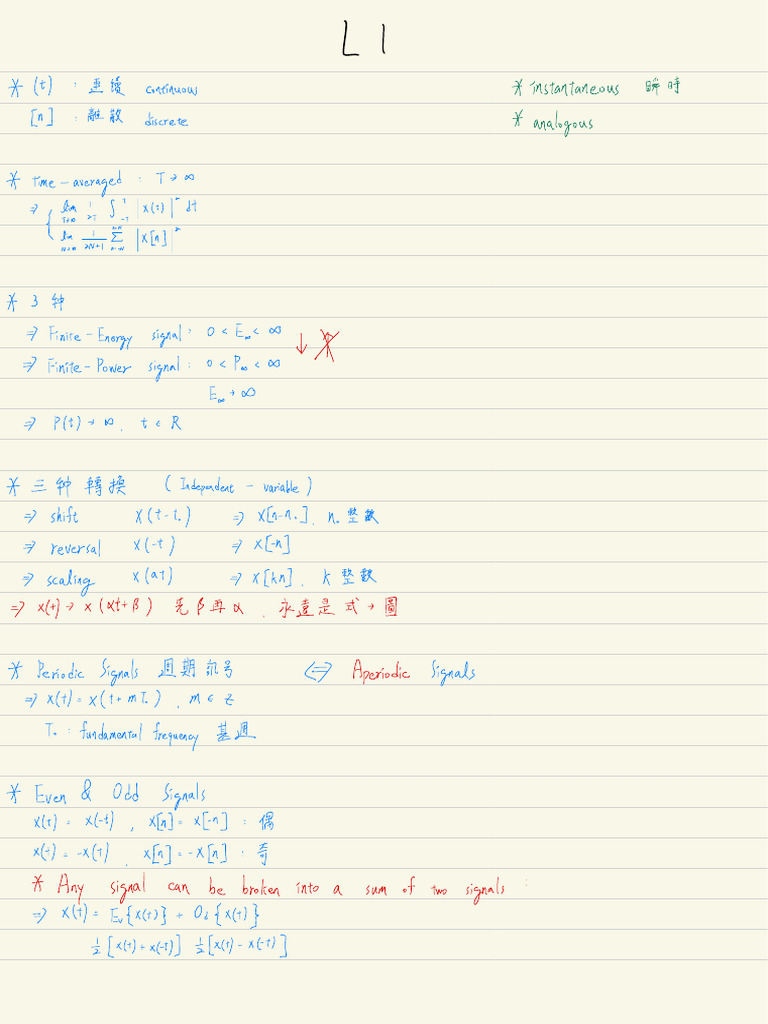 L 1
* (t) : 連續 continuous
* instantaneous 瞬時
[n] : 離散 discrete
* analogous
* time-averaged : T→∞
⇒ { lim T→∞ 1/2T ∫_{-T}^{T} |x(t)|² dt
lim N→∞ 1/(2N+1) Σ_{n=-N}^{+N} |x[n]|²
* 3 种
⇒ Finite-Energy signal : 0 < E∞ < ∞
⇒ Finite-Power signal : 0 < P∞ < ∞
E∞ → ∞
⇒ P(t) → ∞, t ∈ R
* 三种 轉換 (Independent - variable)
⇒ shift x(t-t₀) ⇒ x[n-n₀], n₀ 整數
⇒ reversal x(-t) ⇒ x[-n]
⇒ scaling x(at) ⇒ x[kn], k 整數
⇒ x(t) → x(αt+β) 先β再α, 永遠是式→圖
* Periodic Signals 週期訊号 ⇔ Aperiodic Signals
⇒ x(t) = x(t+mT₀), m ∈ Z
T₀ : fundamental frequency 基週
* Even & Odd Signals
x(t) = x(-t), x[n] = x[-n] : 偶
x(-t) = -x(t), x[n] = -x[n] : 奇
* Any signal can be broken into a sum of two signals :
⇒ x(t) = Ev{x(t)} + Od{x(t)}
½[x(t)+x(-t)] ½[x(t)-x(-t)]